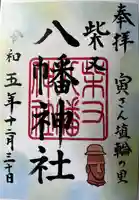 奉拝
寅さん埴輪の里
柴又
八幡神社
令和五年十二月三十日